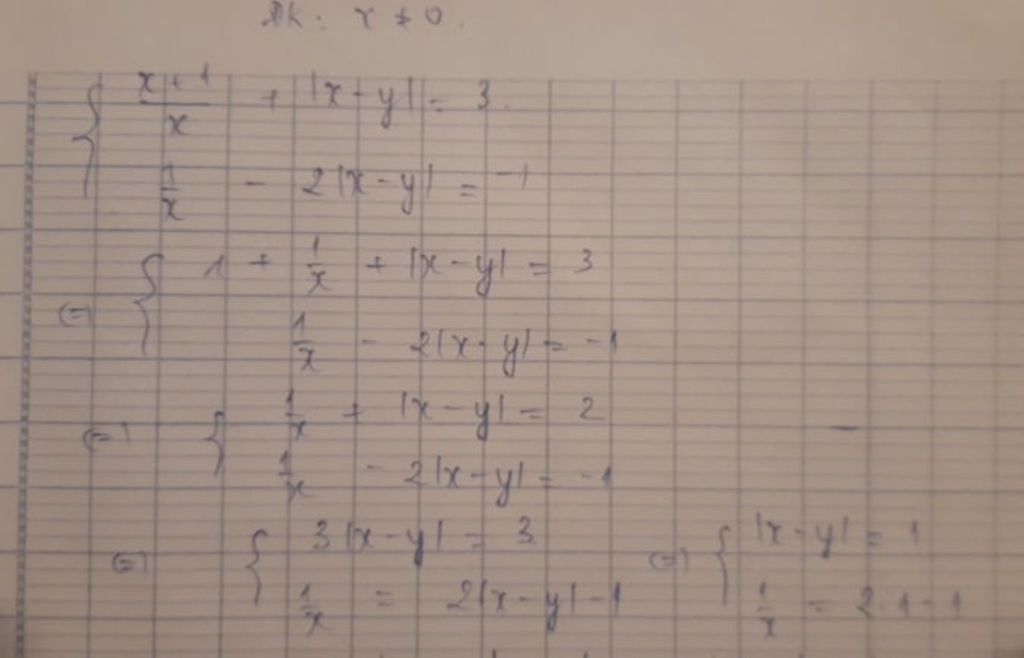 ĐK: x ≠ 0.
{ (x + 1)/x + |x - y| = 3.
1/x - 2|x - y| = -1
(=) { 1 + 1/x + |x - y| = 3
1/x - 2|x - y| = -1
(=) { 1/x + |x - y| = 2
1/x - 2|x - y| = -1
(=) { 3|x - y| = 3 (=) { |x - y| = 1
1/x = 2|x - y| - 1 1/x = 2.1 - 1